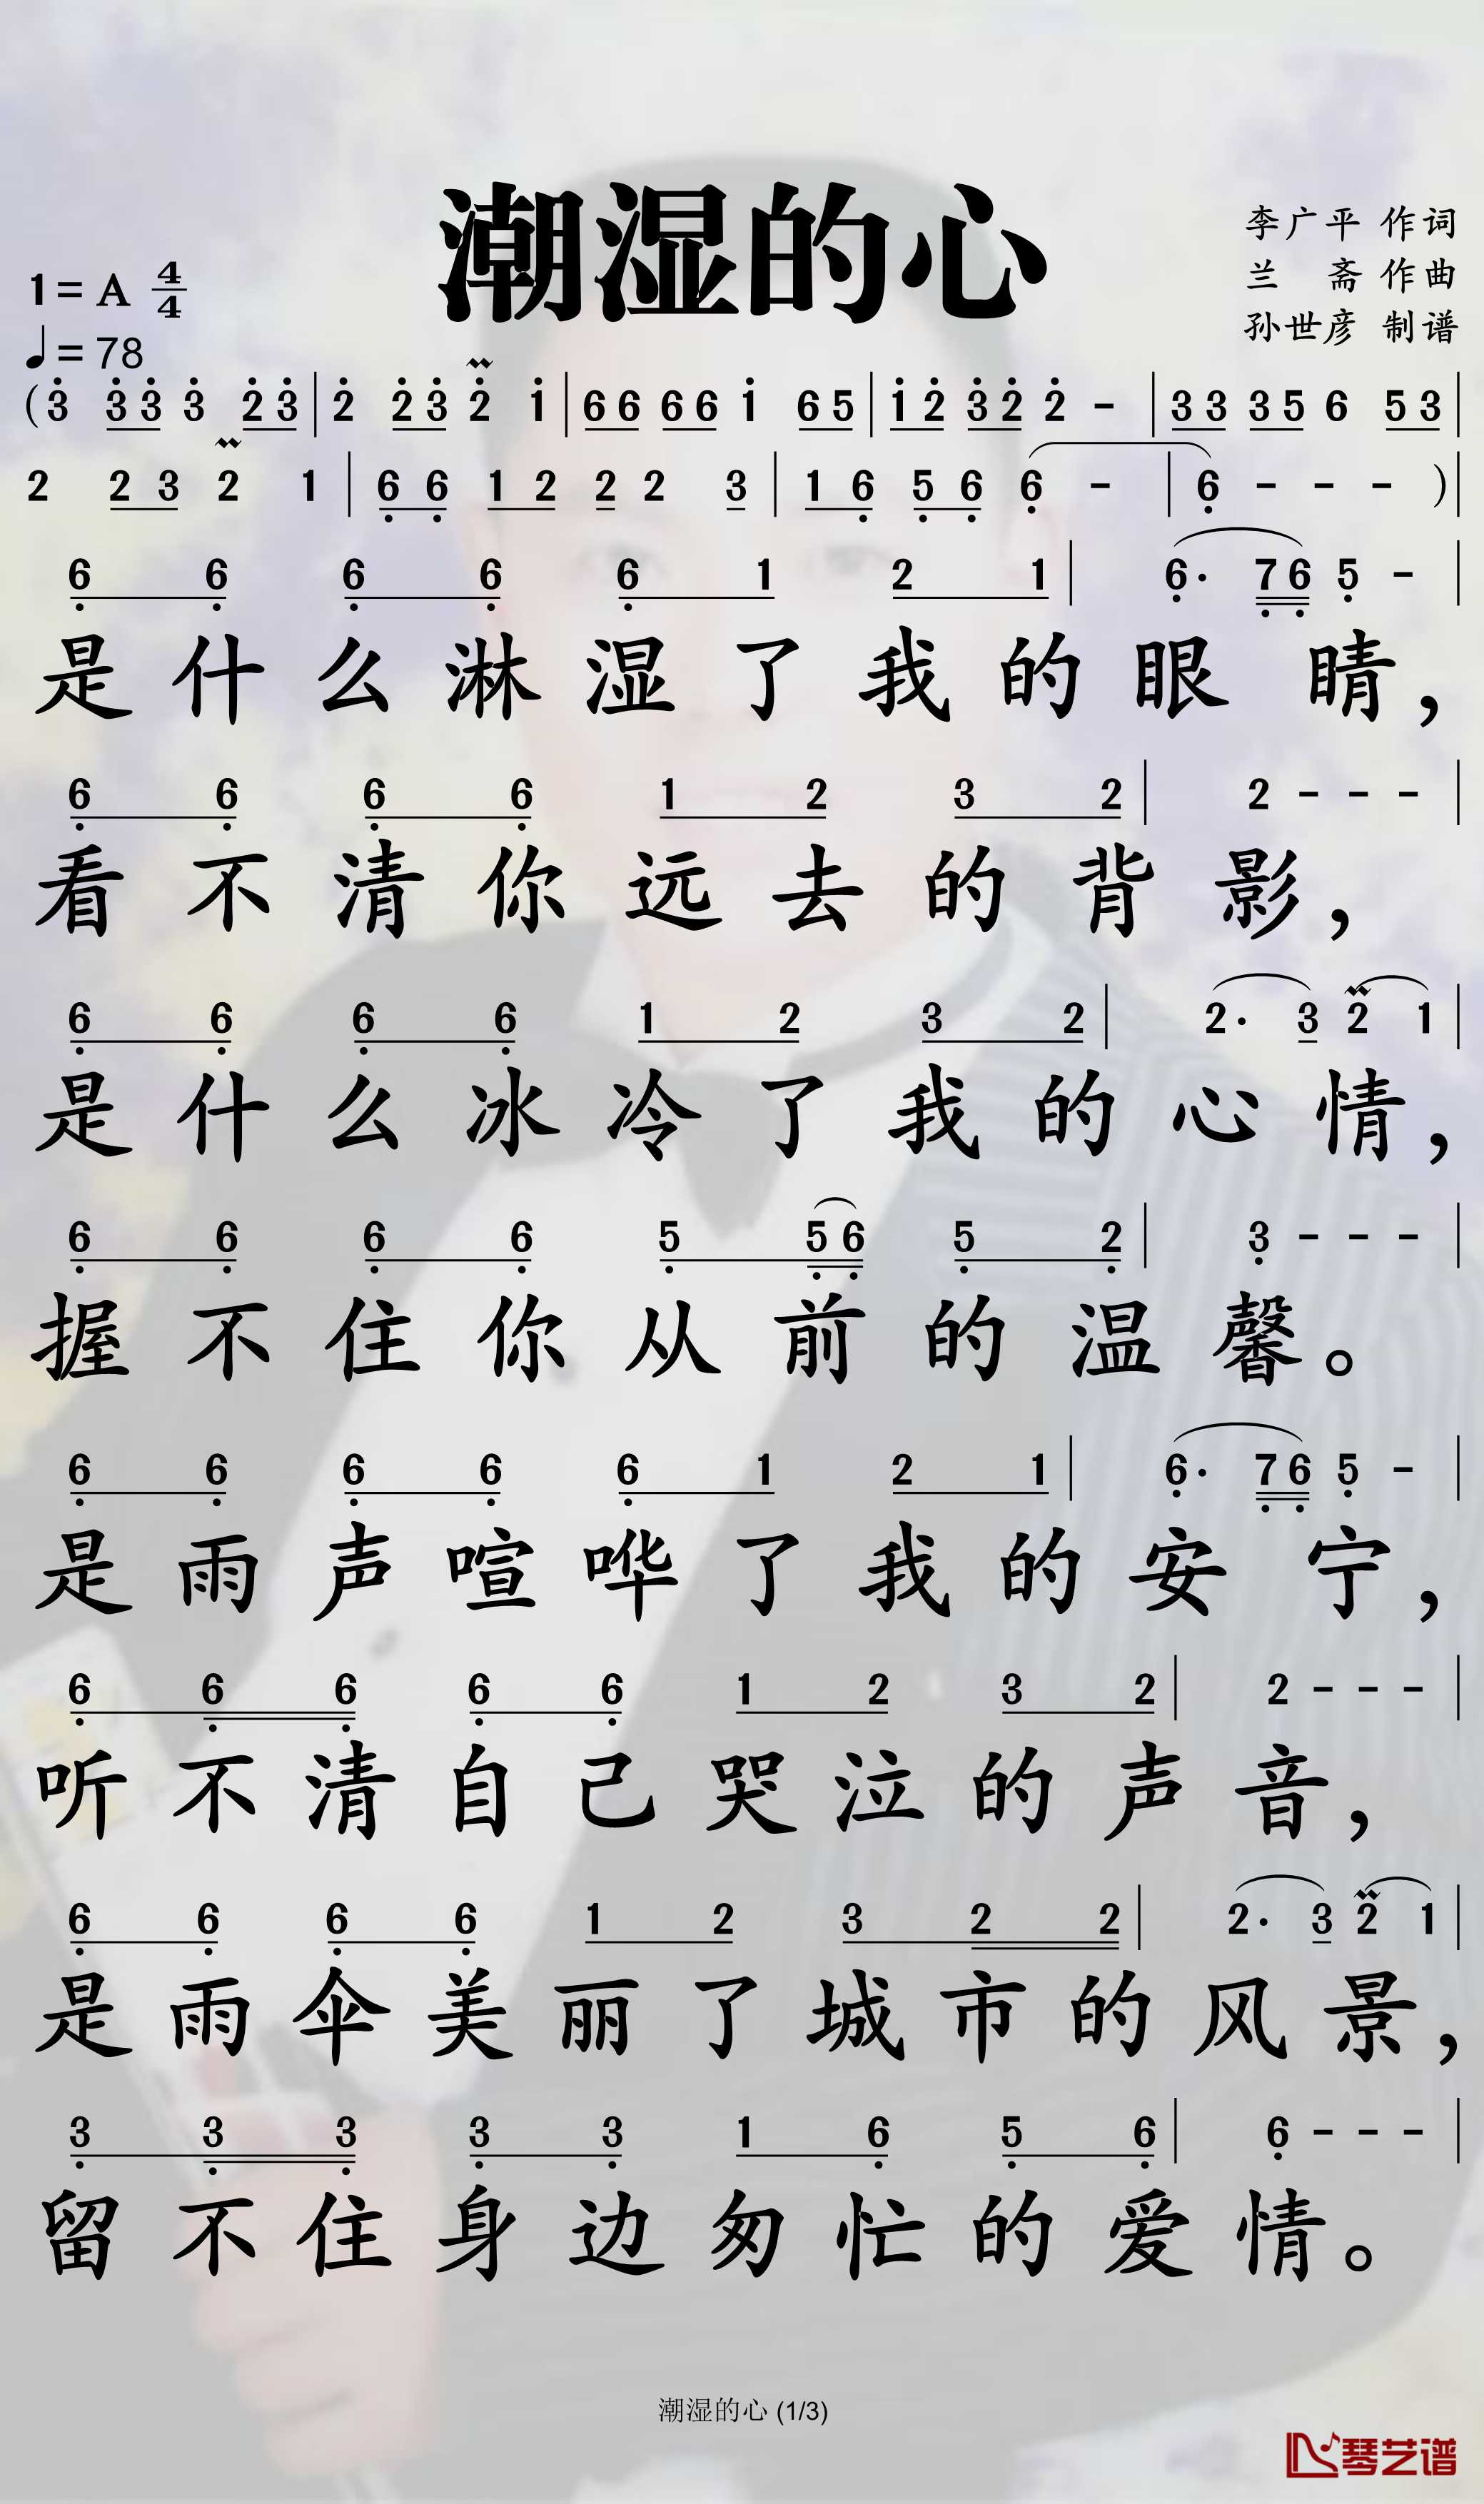 潮湿的心
李广平 作词
兰 斋 作曲
孙世彦 制谱
1=A 4/4
♩=78
(3 3 3 3 2 3 | 2 2 3 2 1 | 6 6 6 6 1 6 5 | 1 2 3 2 2 - | 3 3 3 5 6 5 3 |
2 2 3 2 1 | 6 6 1 2 2 2 3 | 1 6 5 6 6 - | 6 - - - ) |
6 6 6 6 6 1 2 1 | 6· 7 6 5 - |
是什么淋湿了我的眼睛，
6 6 6 6 1 2 3 2 | 2 - - - |
看不清你远去的背影，
6 6 6 6 1 2 3 2 | 2· 3 2 1 |
是什么冰冷了我的心情，
6 6 6 6 5 5 6 5 2 | 3 - - - |
握不住你从前的温馨。
6 6 6 6 6 1 2 1 | 6· 7 6 5 - |
是雨声喧哗了我的安宁，
6 6 6 6 6 1 2 3 2 | 2 - - - |
听不清自己哭泣的声音，
6 6 6 6 1 2 3 2 2 | 2· 3 2 1 |
是雨伞美丽了城市的风景，
3 3 3 3 3 1 6 5 6 | 6 - - - |
留不住身边匆忙的爱情。
潮湿的心 (1/3)
琴艺谱